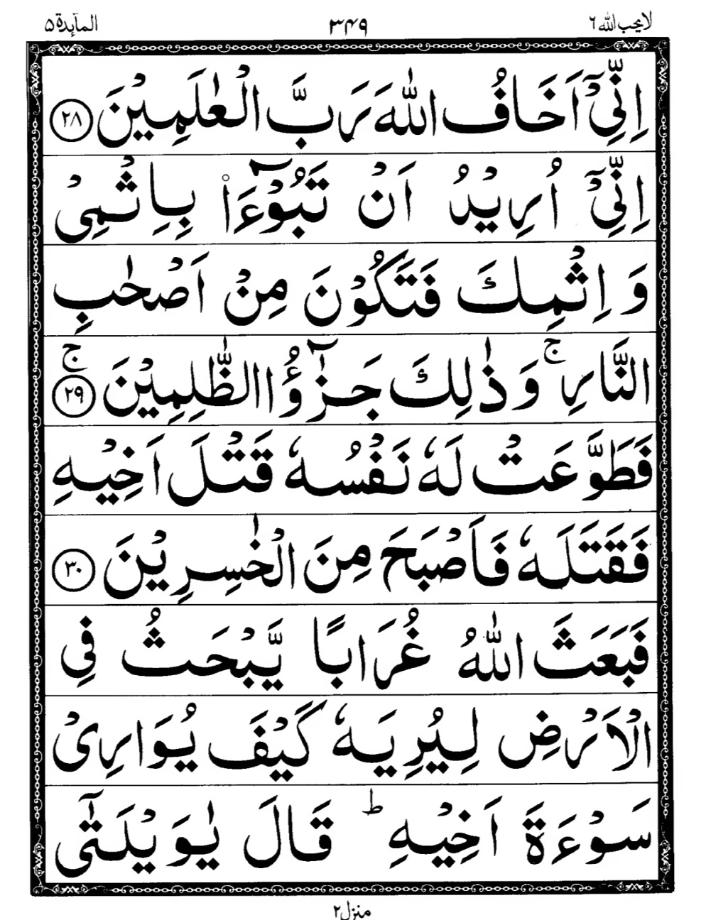 لا یحب الله ٦
٣٤٩
المآئدة ٥
اِنِّیْۤ اَخَافُ اللّٰهَ رَبَّ الْعٰلَمِیْنَ ﴿۲۸﴾
اِنِّیْۤ اُرِیْدُ اَنْ تَبُوْٓءَاۡ بِاِثْمِیْ
وَ اِثْمِكَ فَتَكُوْنَ مِنْ اَصْحٰبِ
النَّارِ ۚ وَ ذٰلِكَ جَزٰٓؤُا الظّٰلِمِیْنَ ﴿ۚ۲۹﴾
فَطَوَّعَتْ لَهٗ نَفْسُهٗ قَتْلَ اَخِیْهِ
فَقَتَلَهٗ فَاَصْبَحَ مِنَ الْخٰسِرِیْنَ ﴿۳۰﴾
فَبَعَثَ اللّٰهُ غُرَابًا یَّبْحَثُ فِی
الْاَرْضِ لِیُرِیَهٗ كَیْفَ یُوَارِیْ
سَوْءَةَ اَخِیْهِ ؕ قَالَ یٰوَیْلَتٰۤی
منزل ۲